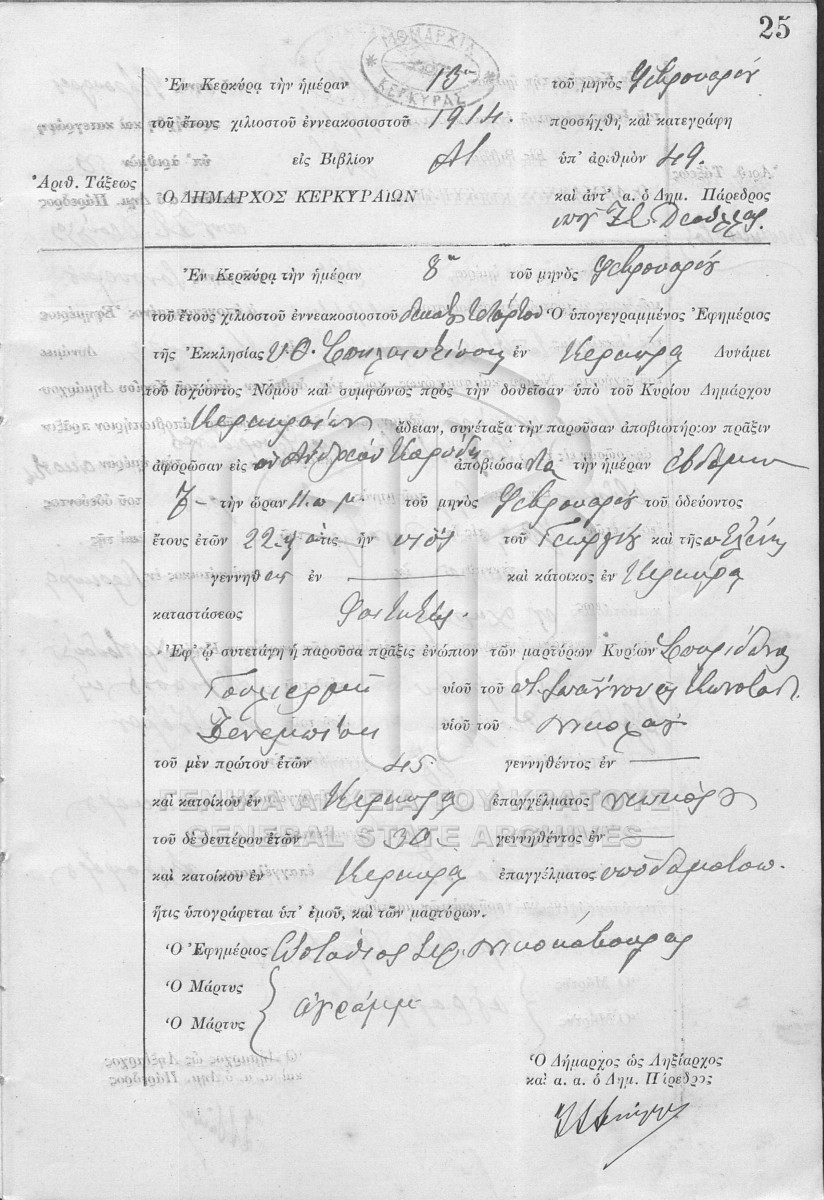 25
ΔΗΜΑΡΧΙΑ ΚΕΡΚΥΡΑΣ
Ἐν Κερκύρᾳ τὴν ἡμέραν 13ην τοῦ μηνὸς Φεβρουαρίου
τοῦ ἔτους χιλιοστοῦ ἐννεακοσιοστοῦ 1914. προσήχθη καὶ κατεγράφη
εἰς Βιβλίον ὑπ' ἀριθμὸν 49.
Ἀριθ. Τάξεως
Ὁ ΔΗΜΑΡΧΟΣ ΚΕΡΚΥΡΑΙΩΝ καὶ ἀντ' α. ὁ Δημ. Πάρεδρος
Ἐν Κερκύρᾳ τὴν ἡμέραν 8ην τοῦ μηνὸς Φεβρουαρίου
τοῦ ἔτους χιλιοστοῦ ἐννεακοσιοστοῦ δεκάτου τετάρτου Ὁ ὑπογεγραμμένος Ἐφημέριος
τῆς Ἐκκλησίας Υ. Θ. ἐν Κερκύρᾳ Δυνάμει
τοῦ ἰσχύοντος Νόμου καὶ συμφώνως πρὸς τὴν δοθεῖσαν ὑπὸ τοῦ Κυρίου Δημάρχου
Κερκυραίων ἄδειαν, συνέταξα τὴν παροῦσαν ἀποβιωτήριον πρᾶξιν
ἀφορῶσαν εἰς τὸν Ἀνδρέαν ἀποβιώσαντα τὴν ἡμέραν ἑβδόμην
7 — τὴν ὥραν 11 π. μ. τοῦ μηνὸς Φεβρουαρίου τοῦ ὁδεύοντος
ἔτους ἐτῶν 22 ὅστις ἦν υἱὸς τοῦ Γεωργίου καὶ τῆς Ἑλένης
γεννηθεὶς ἐν — καὶ κάτοικος ἐν Κερκύρᾳ
καταστάσεως
Ἐφ' ᾧ συνετάγη ἡ παροῦσα πρᾶξις ἐνώπιον τῶν μαρτύρων Κυρίων Σπυρίδωνα
υἱοῦ τοῦ Ἰωάννου
υἱοῦ τοῦ Νικολάου
τοῦ μὲν πρώτου ἐτῶν 45 γεννηθέντος ἐν —
καὶ κατοίκου ἐν Κερκύρᾳ ἐπαγγέλματος
ΓΕΝΙΚΑ ΑΡΧΕΙΑ ΤΟΥ ΚΡΑΤΟΥΣ
GENERAL STATE ARCHIVES
τοῦ δὲ δευτέρου ἐτῶν 30 γεννηθέντος ἐν —
καὶ κατοίκου ἐν Κερκύρᾳ ἐπαγγέλματος ὑποδηματοπ.
ἥτις ὑπογράφεται ὑπ' ἐμοῦ, καὶ τῶν μαρτύρων.
Ὁ Ἐφημέριος
Ὁ Μάρτυς
ἀγράμμ.
Ὁ Μάρτυς
Ὁ Δήμαρχος ὡς Ληξίαρχος
καὶ α. α. ὁ Δημ. Πάρεδρος